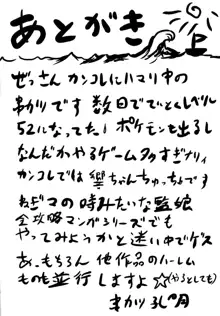 あとがき
ぜっさんカンコレにハマり中の
まかりです 数日でていとくレベル
52になってた! ポケモンも出るし
なんだわやるゲームタタすぎナリィ
カンコレでは響ちゃんちゅっちょです
ネギマの時みたいな艦娘
全攻略マンガシリーズでも
やってみようかと迷い中でゲス
あ、もちろん他作品のハーレム
ものも並行しますよ☆(やるとしても)